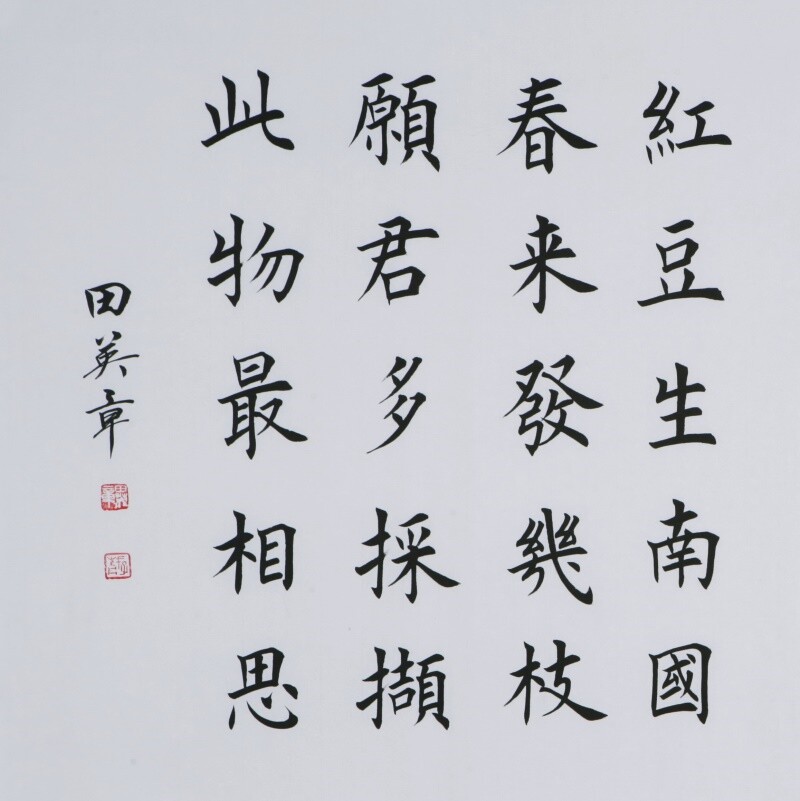 紅豆生南國
春来發幾枝
願君多採擷
此物最相思
田英章